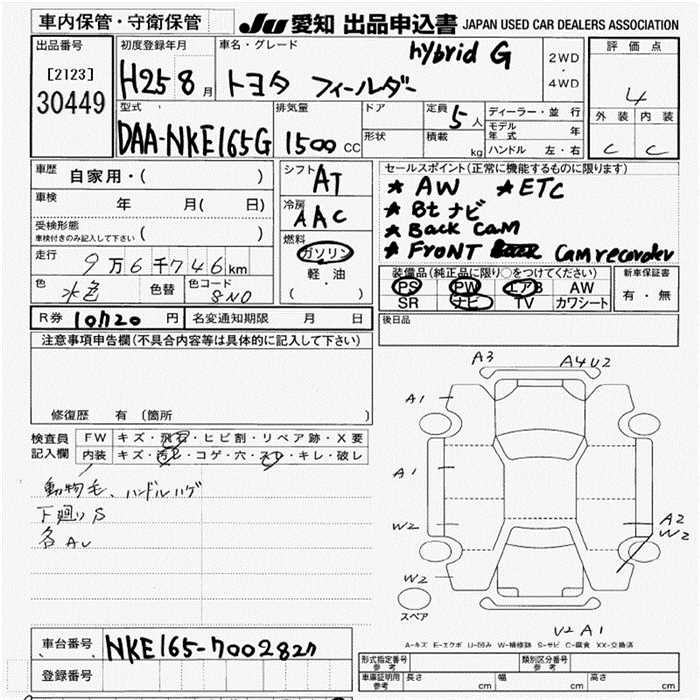 車内保管・守衛保管
JU 愛知 出品申込書 JAPAN USED CAR DEALERS ASSOCIATION
出品番号
[2123]
30449
初度登録年月
H25 8 月
車名・グレード
hybrid G
トヨタ フィールダー
2WD
・
4WD
評価点
4
外装 内装
C C
型式
DAA-NKE165G
排気量
1500 CC
ドア
形状
定員 5 人
積載 kg
ディーラー・並行
モデル年式 年
ハンドル 左・右
車歴 自家用・( )
車検 年 月( 日)
受検形態
車検付きのみ記入して下さい ( )
走行 9万6千746km
色 水色 色替 色コード 8N0
シフト AT
冷房 AAC
燃料
ガソリン
軽・油
( )
セールスポイント(正常に機能するものに限ります)
★ AW ★ETC
★ Bt ナビ
★ Back cam
★ FroNT Cam recorder
装備品(純正品に限り○をつけてください)
PS PW エアB AW
SR ナビ TV カワシート
新車保証書
有・無
R券 10720 円 名変通知期限 月 日
後日品
注意事項申告欄(不具合内容等は具体的に記入して下さい)
修復歴 有 (箇所 )
検査員
記入欄
FW キズ・飛石・ヒビ割・リペア跡・X要
内装 キズ・汚レ・コゲ・穴・スレ・キレ・破レ
動物毛、ハンドルハゲ
下廻りS
各AU
A3 A4U2
A1
A1
W2 A2
W2
W2
スペア
U2 A1
A-キズ E-エクボ U-凹み W-補修跡 S-サビ C-腐食 XX-交換済
車台番号 NKE165-7002827
登録番号
形式指定番号
参考
類別区分番号
参考
車庫証明用
参考
長さ cm 幅 cm 高さ cm